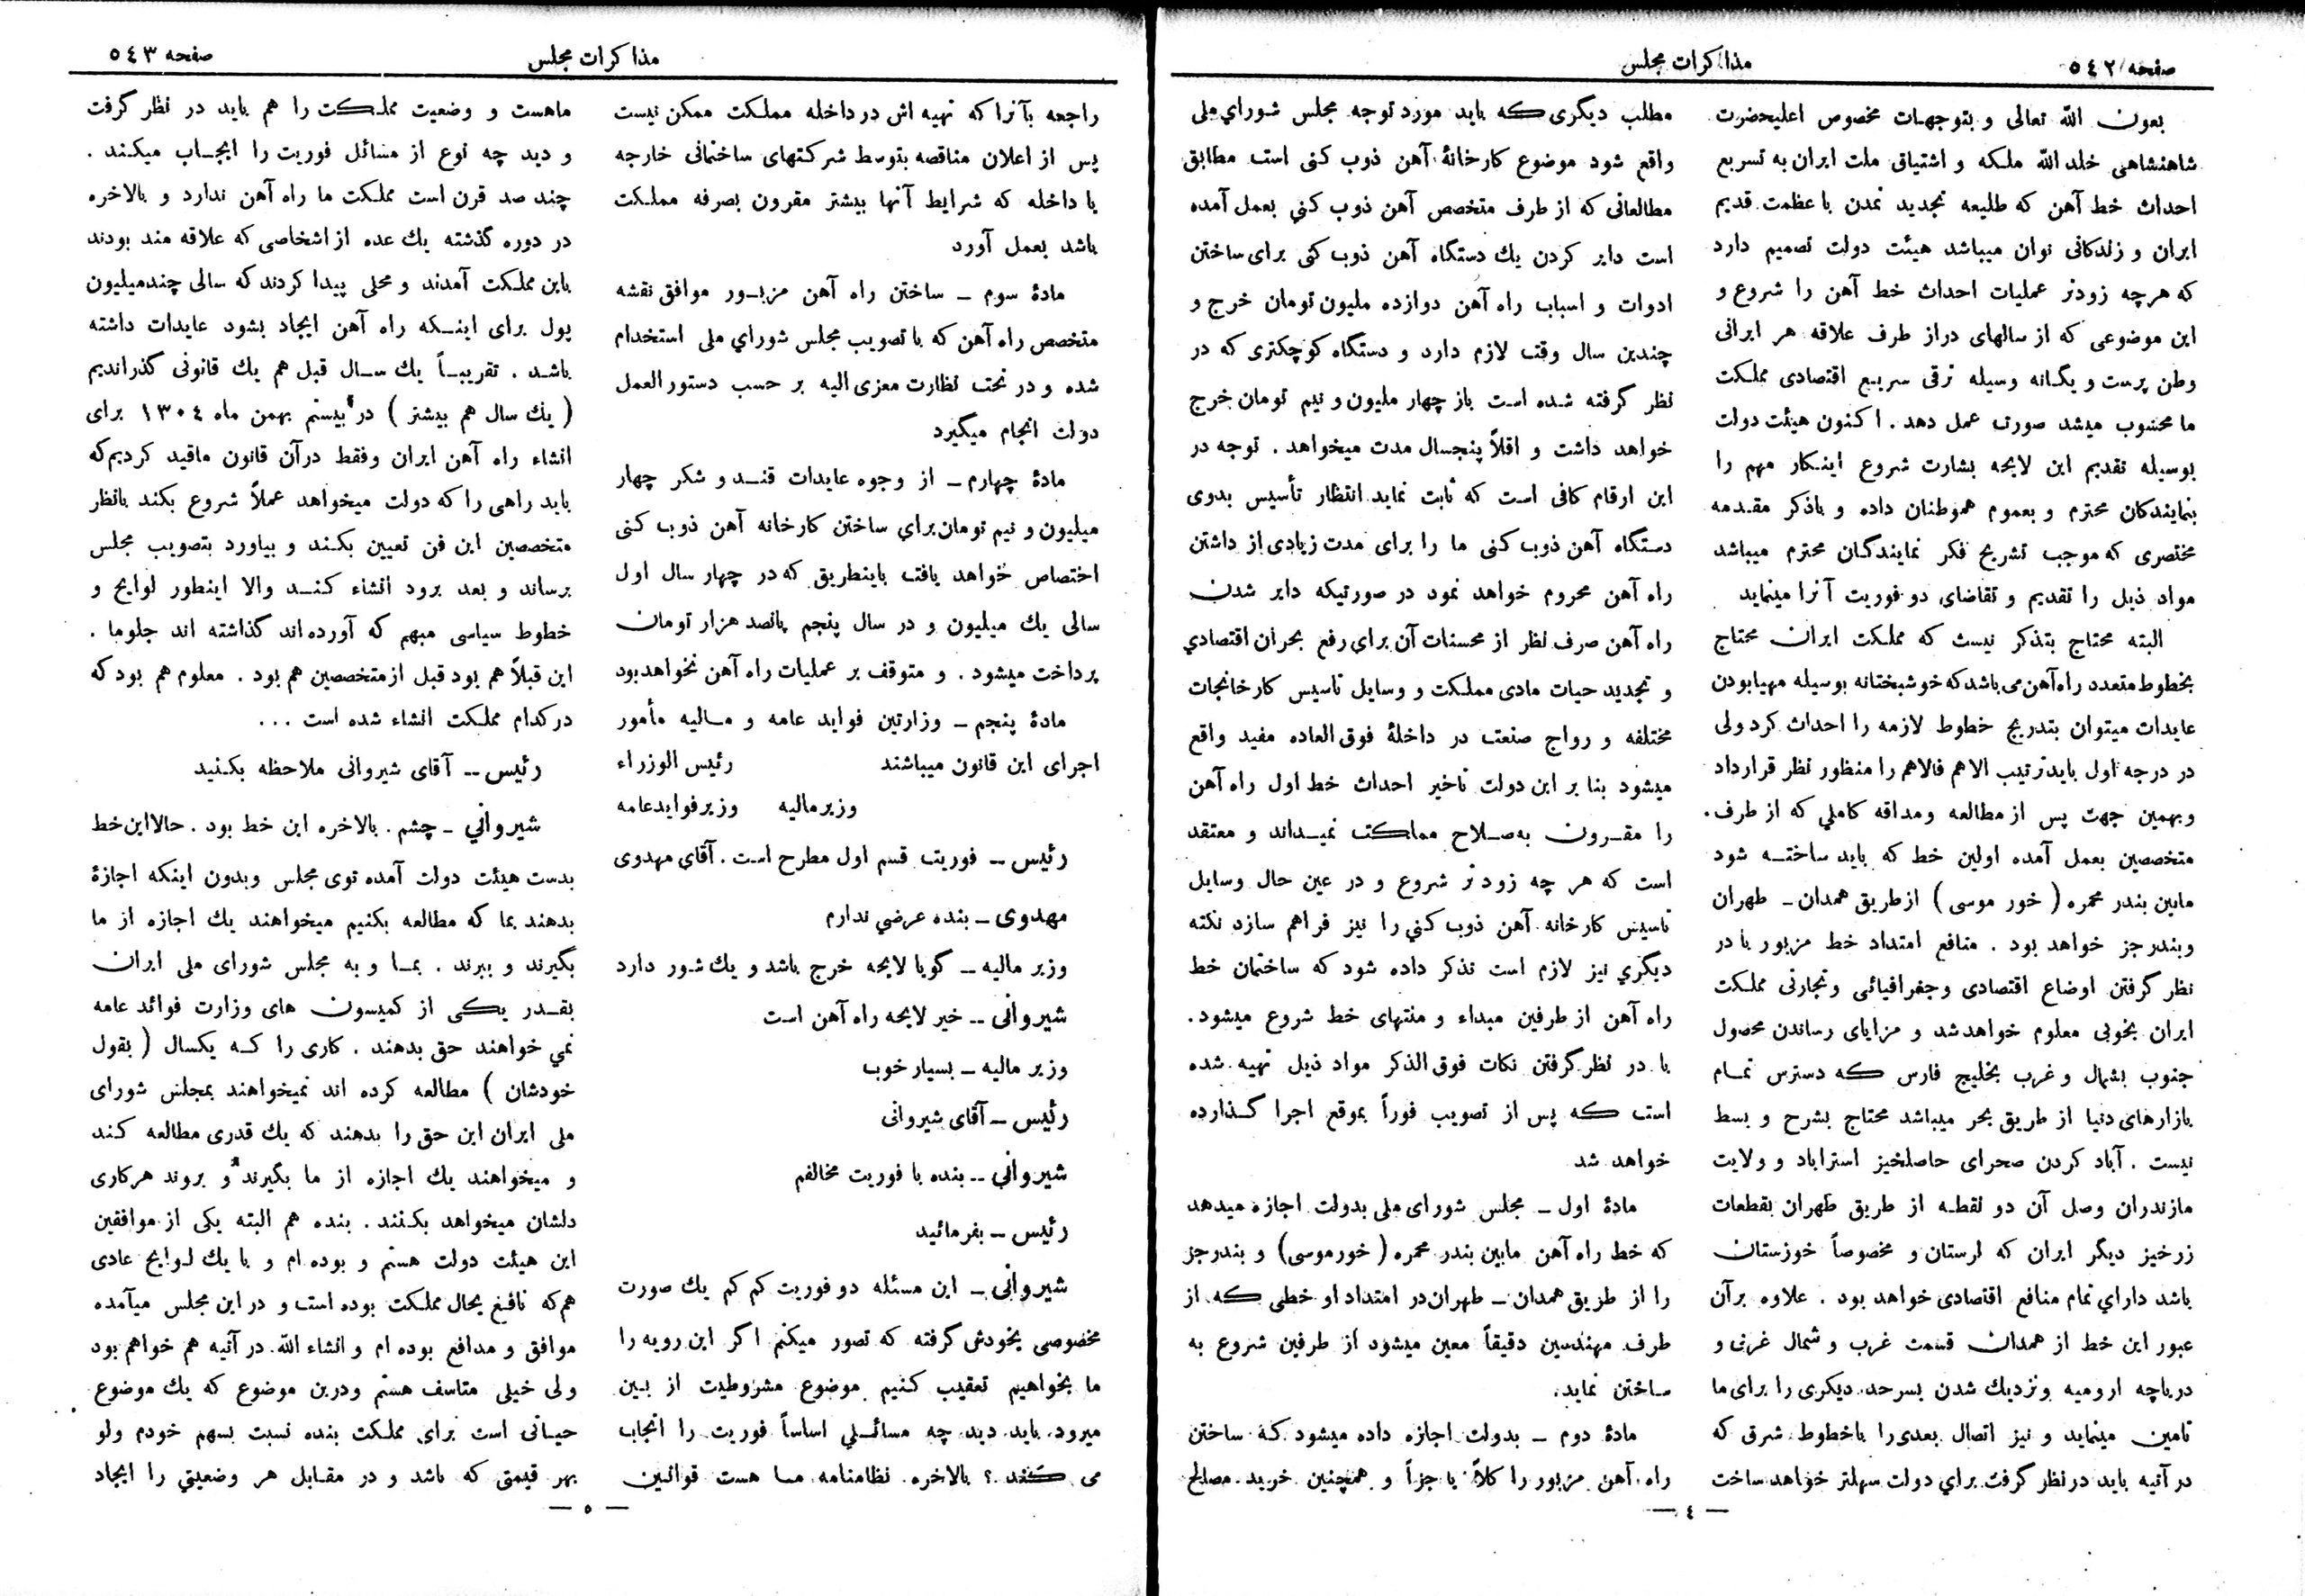 صفحه ٥٤٢
مذاکرات مجلس
بعون الله تعالی و بتوجهات مخصوص اعلیحضرت
شاهنشاهی خلد الله ملکه و اشتیاق ملت ایران به تسریع
احداث خط آهن که طلیعه تجدید تمدن با عظمت قدیم
ایران و زندگانی توان میباشد هیئت دولت تصمیم دارد
که هرچه زودتر عملیات احداث خط آهن را شروع و
این موضوعی که از سالهای دراز طرف علاقه هر ایرانی
وطن پرست و یگانه وسیله ترقی سریع اقتصادی مملکت
ما محسوب میشد صورت عمل دهد . اکنون هیئت دولت
بوسیله تقدیم این لایحه بشارت شروع اینکار مهم را
بنمایندگان محترم و بعموم هموطنان داده و باذکر مقدمه
مختصری که موجب تشریح فکر نمایندگان محترم میباشد
مواد ذیل را تقدیم و تقاضای دو فوریت آنرا مینماید
البته محتاج بتذکر نیست که مملکت ایران محتاج
بخطوط متعدد راه‌آهن می‌باشد که خوشبختانه بوسیله مهیا بودن
عایدات میتوان بتدریج خطوط لازمه را احداث کرد ولی
در درجه اول باید ترتیب الاهم فالاهم را منظور نظر قرار داد
و بهمین جهت پس از مطالعه ومداقه کاملی که از طرف
متخصصین بعمل آمده اولین خط که باید ساخته شود
مابین بندر محمره ( خور موسی ) از طریق همدان ـ طهران
و بندرجز خواهد بود . منافع امتداد خط مزبور با در
نظر گرفتن اوضاع اقتصادی و جغرافیائی و تجارتی مملکت
ایران بخوبی معلوم خواهد شد و مزایای رساندن محصول
جنوب بشمال و غرب بخلیج فارس که دسترس تمام
بازارهای دنیا از طریق بحر میباشد محتاج بشرح و بسط
نیست . آباد کردن صحرای حاصلخیز استراباد و ولایت
مازندران وصل آن دو نقطه از طریق طهران بقطعات
زرخیز دیگر ایران که لرستان و مخصوصاً خوزستان
باشد دارای تمام منافع اقتصادی خواهد بود . علاوه برآن
عبور این خط از همدان قسمت غرب و شمال غربی و
دریاچه ارومیه و نزدیك شدن بسرحد دیگری را برای ما
تامین مینماید و نیز اتصال بعدی را باخطوط شرق که
در آتیه باید در نظر گرفت برای دولت سهلتر خواهد ساخت
مطلب دیگری که باید مورد توجه مجلس شورای ملی
واقع شود موضوع کارخانهٔ آهن ذوب کنی است مطابق
مطالعاتی که از طرف متخصص آهن ذوب کنی بعمل آمده
است دایر کردن یك دستگاه آهن ذوب کنی برای ساختن
ادوات و اسباب راه آهن دوازده ملیون تومان خرج و
چندین سال وقت لازم دارد و دستگاه کوچکتری که در
نظر گرفته شده است باز چهار ملیون و نیم تومان خرج
خواهد داشت و اقلاً پنجسال مدت میخواهد . توجه در
این ارقام کافی است که ثابت نماید انتظار تأسیس بدوی
دستگاه آهن ذوب کنی ما را برای مدت زیادی از داشتن
راه آهن محروم خواهد نمود در صورتیکه دایر شدن
راه آهن صرف نظر از محسنات آن برای رفع بحران اقتصادی
و تجدید حیات مادی مملکت و وسایل تاسیس کارخانجات
مختلفه و رواج صنعت در داخلهٔ فوق العاده مفید واقع
میشود بنا بر این دولت تاخیر احداث خط اول راه آهن
را مقرون به‌صلاح مملکت نمیداند و معتقد
است که هر چه زود تر شروع و در عین حال وسایل
تاسیس کارخانه آهن ذوب کنی را نیز فراهم سازد نکته
دیگری نیز لازم است تذکر داده شود که ساختمان خط
راه آهن از طرفین مبداء و منتهای خط شروع میشود .
با در نظر گرفتن نکات فوق الذکر مواد ذیل تهیه شده
است که پس از تصویب فوراً بموقع اجرا گذارده
خواهد شد
مادهٔ اول ـ مجلس شورای ملی بدولت اجازه میدهد
که خط راه آهن مابین بندر محمره ( خورموسی ) و بندرجز
را از طریق همدان ـ طهران در امتداد او خطی که از
طرف مهندسین دقیقاً معین میشود از طرفین شروع به
ساختن نماید.
مادهٔ دوم ـ بدولت اجازه داده میشود که ساختن
راه آهن مزبور را کلاً یا جزاً و همچنین خرید مصالح
ـ ٤ ـ
صفحه ٥٤٣
مذاکرات مجلس
راجعه بآنرا که تهیه اش در داخله مملکت ممکن نیست
پس از اعلان مناقصه بتوسط شرکتهای ساختمانی خارجه
یا داخله که شرایط آنها بیشتر مقرون بصرفه مملکت
باشد بعمل آورد
مادهٔ سوم ـ ساختن راه آهن مزبور موافق نقشه
متخصص راه آهن که با تصویب مجلس شورای ملی استخدام
شده و در تحت نظارت معزی الیه بر حسب دستور العمل
دولت انجام میگیرد
مادهٔ چهارم ـ از وجوه عایدات قند و شکر چهار
میلیون و نیم تومان برای ساختن کارخانه آهن ذوب کنی
اختصاص خواهد یافت باینطریق که در چهار سال اول
سالی یك میلیون و در سال پنجم پانصد هزار تومان
پرداخت میشود . و متوقف بر عملیات راه آهن نخواهد بود
مادهٔ پنجم ـ وزارتین فواید عامه و مالیه مأمور
اجرای این قانون میباشند رئیس الوزراء
وزیر مالیه وزیر فواید عامه
رئیس ـ فوریت قسم اول مطرح است . آقای مهدوی
مهدوی ـ بنده عرضی ندارم
وزیر مالیه ـ گویا لایحه خرج باشد و یك شور دارد
شیروانی ـ خیر لایحه راه آهن است
وزیر مالیه ـ بسیار خوب
رئیس ـ آقای شیروانی
شیروانی ـ بنده با فوریت مخالفم
رئیس ـ بفرمائید
شیروانی ـ این مسئله دو فوریت کم کم یك صورت
مخصوصی بخودش گرفته که تصور میکنم اگر این رویه را
ما بخواهیم تعقیب کنیم موضوع مشروطیت از بین
میرود. باید دید چه مسائلی اساساً فوریت را ایجاب
می کند ؟ بالاخره نظامنامه ما هست قوانین
ماهست و وضعیت مملکت را هم باید در نظر گرفت
و دید چه نوع از مسائل فوریت را ایجاب میکند .
چند صد قرن است مملکت ما راه آهن ندارد و بالاخره
در دوره گذشته یك عده از اشخاصی که علاقه مند بودند
باین مملکت آمدند و محلی پیدا کردند که سالی چند میلیون
پول برای اینکه راه آهن ایجاد بشود عایدات داشته
باشد . تقریباً یك سال قبل هم یك قانونی گذراندیم
( یك سال هم بیشتر ) در بیستم بهمن ماه ١٣٠٤ برای
انشاء راه آهن ایران وفقط درآن قانون ماقید کردیم که
باید راهی را که دولت میخواهد عملاً شروع بکند بانظر
متخصصین این فن تعیین بکند و بیاورد بتصویب مجلس
برساند و بعد برود انشاء کند والا اینطور لوایح و
خطوط سیاسی مبهم که آورده اند گذاشته اند جلوما .
این قبلاً هم بود قبل از متخصصین هم بود . معلوم هم بود که
در کدام مملکت انشاء شده است ...
رئیس ـ آقای شیروانی ملاحظه بکنید
شیروانی ـ چشم . بالاخره این خط بود . حالا این خط
بدست هیئت دولت آمده توی مجلس وبدون اینکه اجازهٔ
بدهند بما که مطالعه بکنیم میخواهند یك اجازه از ما
بگیرند و ببرند . بما و به مجلس شورای ملی ایران
بقدر یکی از کمیسون های وزارت فوائد عامه
نمی خواهند حق بدهند . کاری را که یکسال ( بقول
خودشان ) مطالعه کرده اند نمیخواهند بمجلس شورای
ملی ایران این حق را بدهند که یك قدری مطالعه کند
و میخواهند یك اجازه از ما بگیرند و بروند هرکاری
دلشان میخواهد بکنند . بنده هم البته یکی از موافقین
این هیئت دولت هستم و بوده ام و با یك لوایح عادی
هم که نافع بحال مملکت بوده است و در این مجلس میآمده
موافق و مدافع بوده ام و انشاء الله در آتیه هم خواهم بود
ولی خیلی متاسف هستم ودرین موضوع که یك موضوع
حیاتی است برای مملکت بنده نسبت بسهم خودم ولو
بهر قیمتی که باشد و در مقابل هر وضعیتی را ایجاد
ـ ٥ ـ